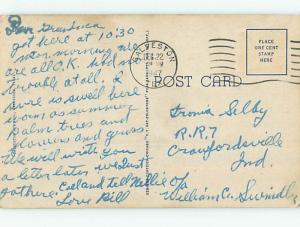 Dear
got here at 10:30
morning
are all O.K. had no
trouble at all.
sure is swell here
warm as summer
Palm trees and
flowers and grass
will write you
a letter later we Just
got here.
and tell Nellie
Love Bill
GALVESTON
DEC 22
PLACE
ONE CENT
STAMP
HERE
POST CARD
Selby
R.R.7
Crawfordsville
Ind.
William C.